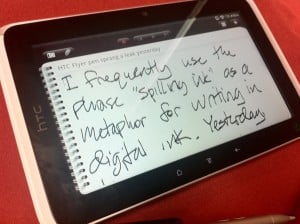 HTC Flyer pen sprang a leak yesterday
I frequently use the
phrase "spilling ink" as a
metaphor for writing in
digital ink. Yesterday
hTC